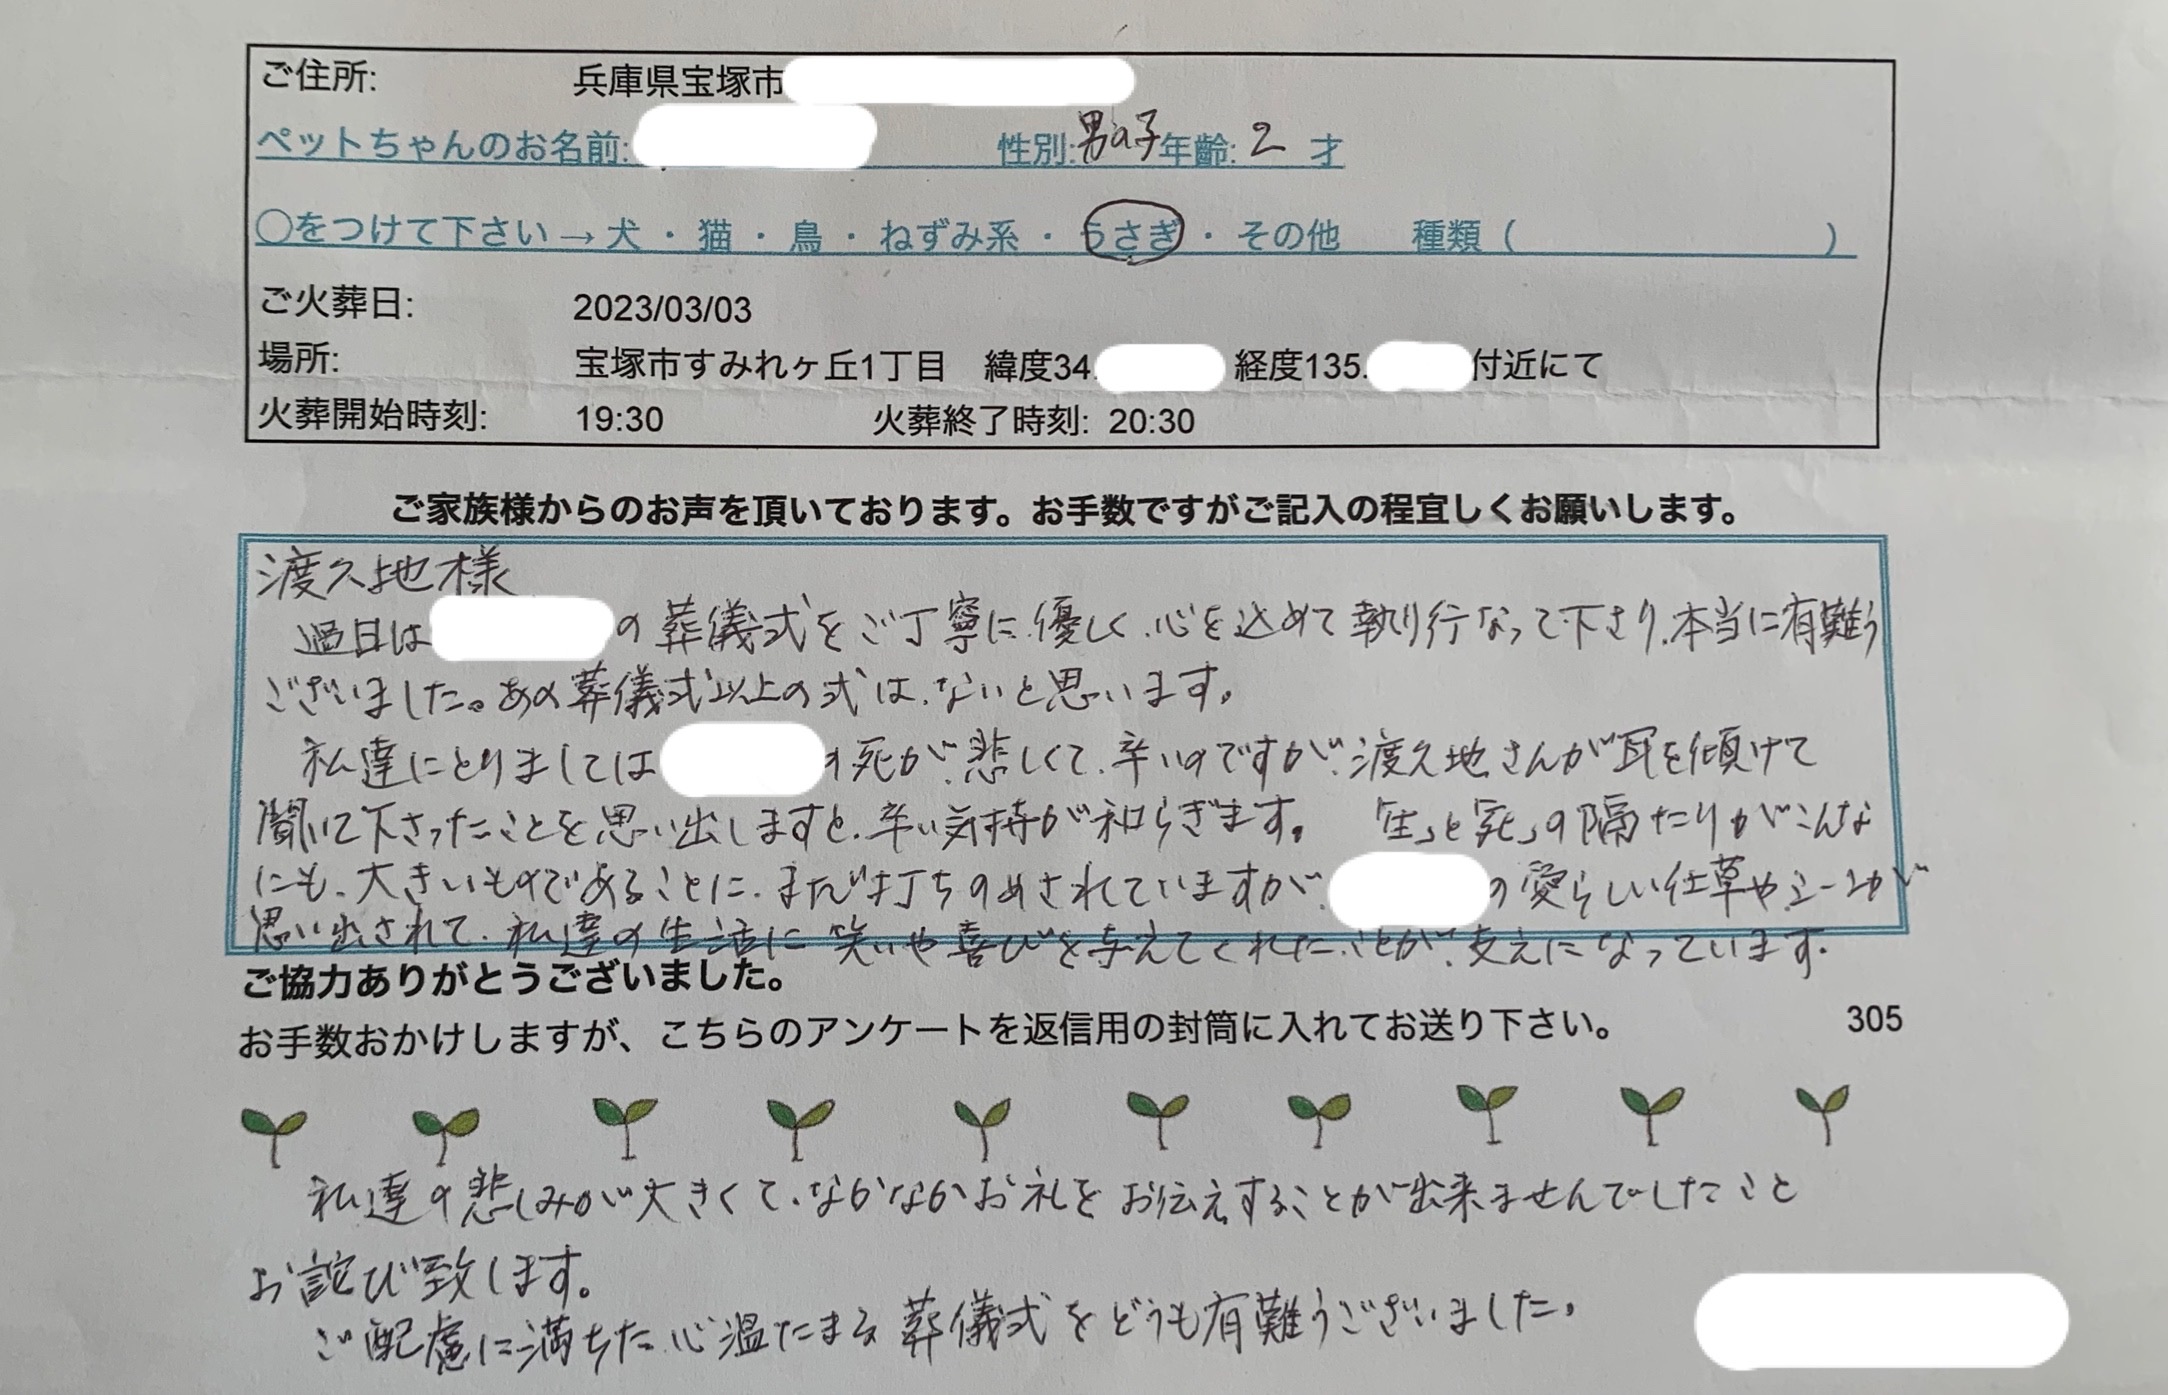 ご住所: 兵庫県宝塚市
ペットちゃんのお名前: 性別:男の子 年齢: 2 才
○をつけて下さい→犬・猫・鳥・ねずみ系・うさぎ・その他 種類( )
ご火葬日: 2023/03/03
場所: 宝塚市すみれヶ丘1丁目 緯度34. 経度135. 付近にて
火葬開始時刻: 19:30 火葬終了時刻: 20:30
ご家族様からのお声を頂いております。お手数ですがご記入の程宜しくお願いします。
渡久地様
過日は の葬儀式をご丁寧に、優しく、心を込めて執り行なって下さり、本当に有難う
ございました。あの葬儀式以上の式は、ないと思います。
私達にとりましては の死が、悲しくて、辛いのですが、渡久地さんが耳を傾けて
聞いて下さったことを思い出しますと、辛い気持が和らぎます。 「生」と「死」の隔たりがこんな
にも、大きいものであることに、まだ打ちのめされていますが、 の愛らしい仕草やシーンが
思い出されて、私達の生活に笑いや喜びを与えてくれたことが、支えになっています。
ご協力ありがとうございました。
お手数おかけしますが、こちらのアンケートを返信用の封筒に入れてお送り下さい。 305
私達の悲しみが大きくて、なかなかお礼をお伝えすることが出来ませんでしたこと
お詫び致します。
ご配慮に満ちた、心温たまる葬儀式をどうも有難うございました。